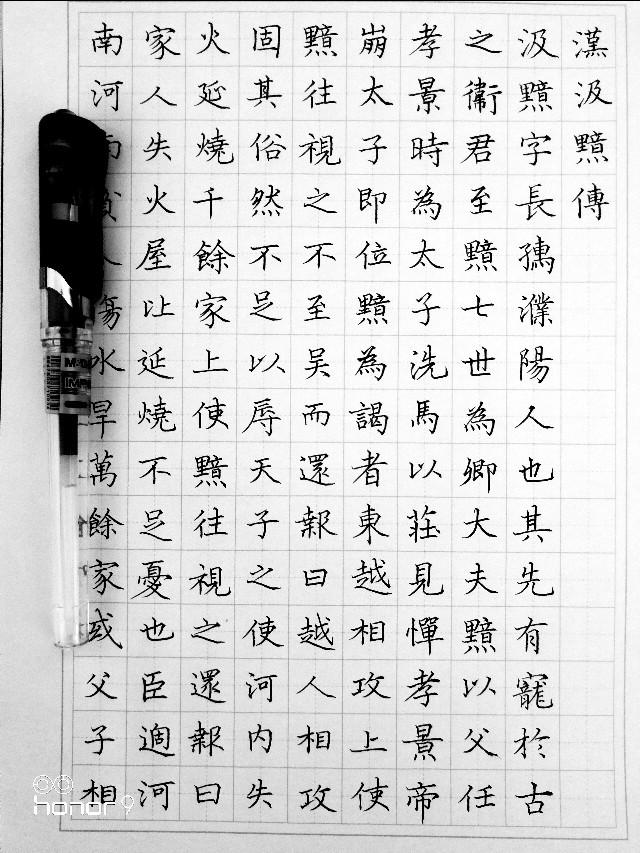 漢汲黯傳
汲黯字長孺濮陽人也其先有寵於古
之衛君至黯七世為卿大夫黯以父任
孝景時為太子洗馬以莊見憚孝景帝
崩太子即位黯為謁者東越相攻上使
黯往視之不至吳而還報曰越人相攻
固其俗然不足以辱天子之使河內失
火延燒千餘家上使黯往視之還報曰
家人失火屋比延燒不足憂也臣過河
南河南貧人傷水旱萬餘家或父子相
honor 9